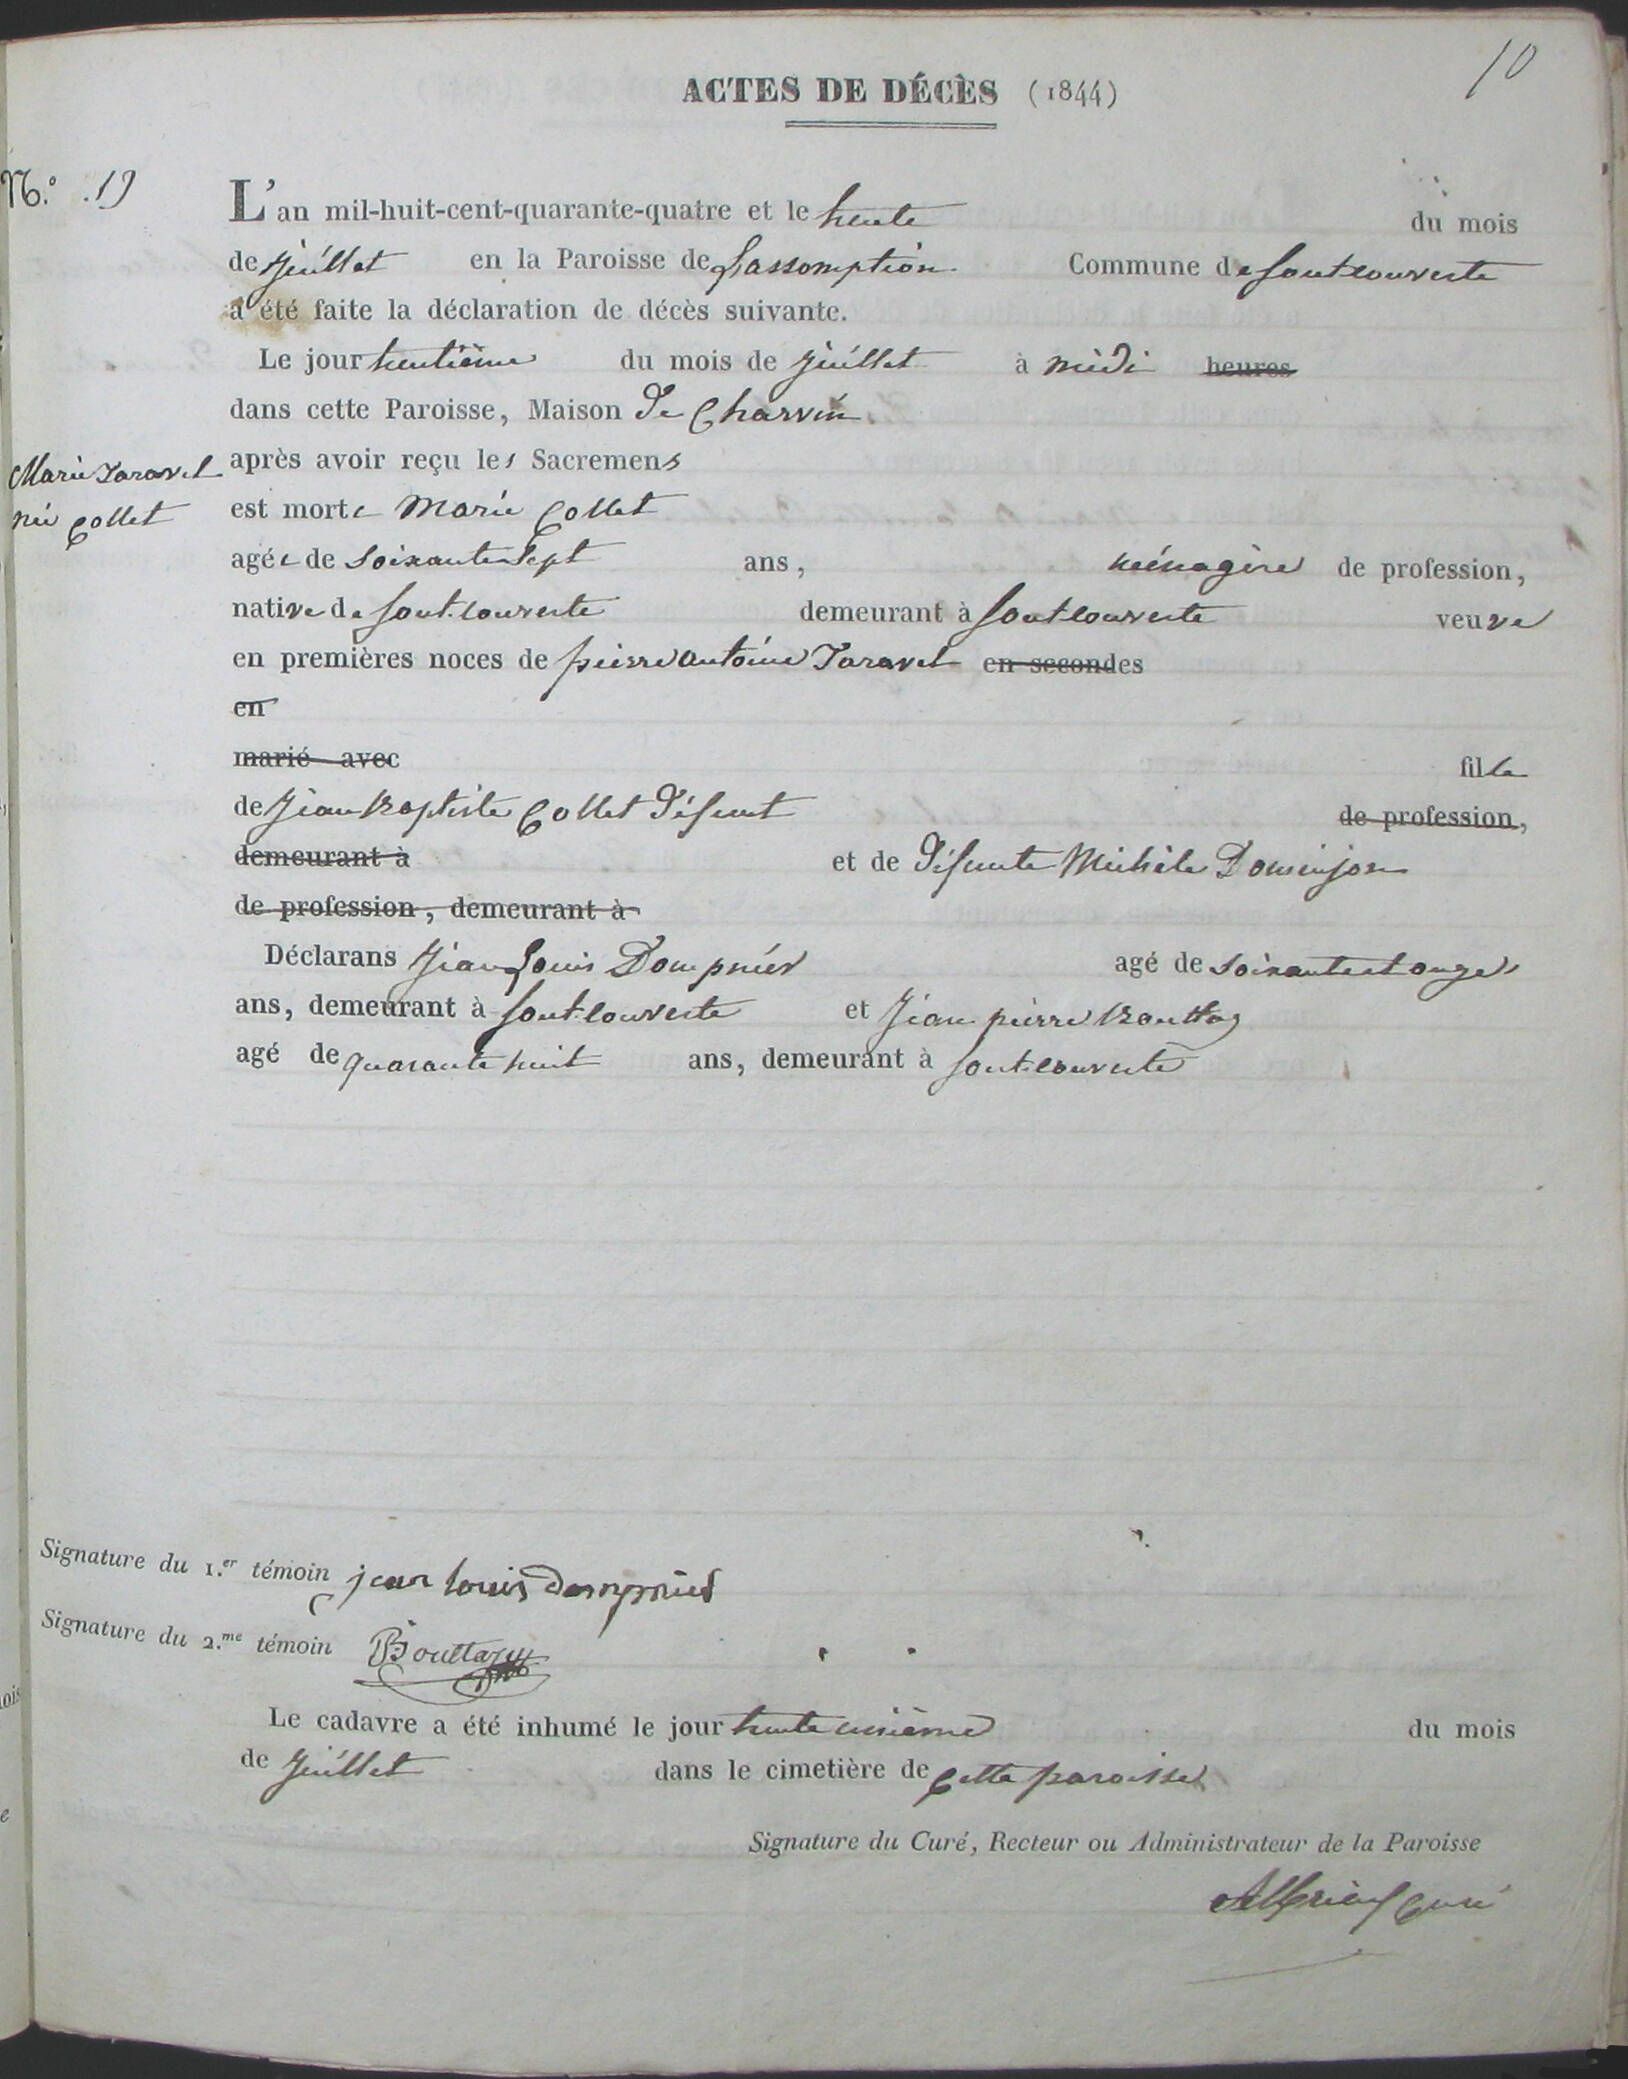 10
ACTES DE DÉCÈS (1844)
N.º 19
L'an mil-huit-cent-quarante-quatre et le trente du mois
de juillet en la Paroisse de L'assomption Commune de fontcouverte
a été faite la déclaration de décès suivante.
Le jour trentième du mois de juillet à midi heures
dans cette Paroisse, Maison de Charvin
Marie Taravel
née Collet
après avoir reçu les Sacremens
est morte Marie Collet
agée de soixante sept ans, ménagère de profession,
native de fontcouverte demeurant à fontcouverte veuve
en premières noces de pierre antoine Taravel en secondes
en
marié avec fille
de jean Baptiste Collet défunt de profession,
demeurant à et de défunte Michèle Dominjon
de profession, demeurant à
Déclarans jean Louis Dompnier agé de soixante et onze
ans, demeurant à fontcouverte et jean pierre Bouttaz
agé de quarante huit ans, demeurant à fontcouverte
Signature du 1.er témoin jean louis dompnier
Signature du 2.me témoin Bouttaz
Le cadavre a été inhumé le jour trente unième du mois
de juillet dans le cimetière de cette paroisse
Signature du Curé, Recteur ou Administrateur de la Paroisse
Curé